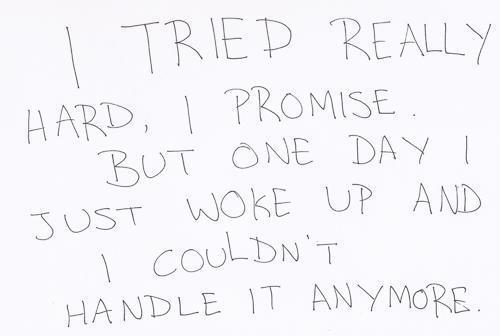 I TRIED REALLY
HARD, I PROMISE.
BUT ONE DAY I
JUST WOKE UP AND
I COULDN'T
HANDLE IT ANYMORE.